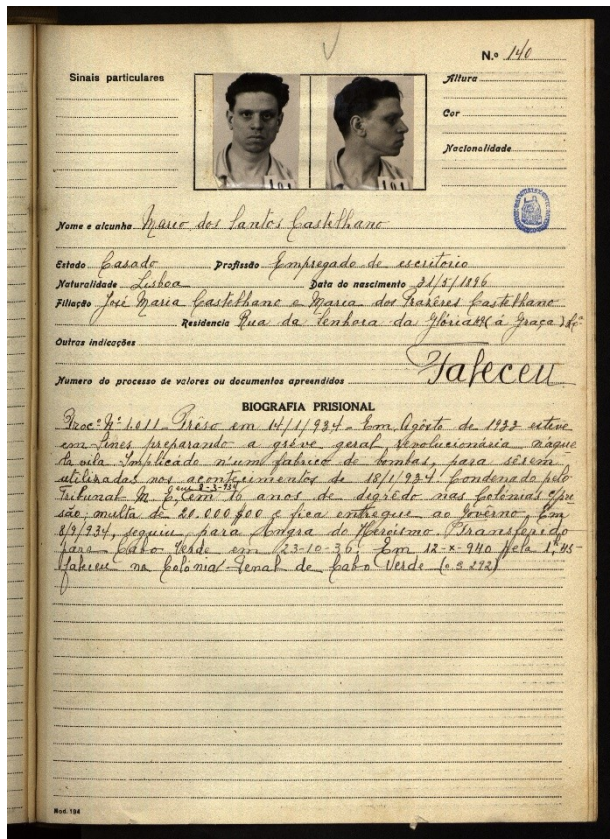 N.º 140
Sinais particulares
Altura
Côr
Nacionalidade
101
101
Nome e alcunha Mario dos Santos Castelhano
Estado Casado Profissão Empregado de escritorio
Naturalidade Lisboa Data do nascimento 31/5/1896
Filiação José Maria Castelhano e Maria dos Prazêres Castelhano
Residencia Rua da Senhora da Glória (á Graça)
Outras indicações
Faleceu
Numero do processo de valores ou documentos apreendidos
BIOGRAFIA PRISIONAL
Proc.º Nº 1.011 - Prêso em 14/1/934 - Em Agôsto de 1933 esteve
em Sines preparando a gréve geral revolucionária naque
la vila. Implicado n'um fabrico de bombas, para sêrem
utilizadas nos acontecimentos de 18/1/934. Condenado pelo
Tribunal M. E., em 8-3-934 em 16 anos de degrêdo nas Colónias c/pri
são, multa de 20.000$00 e fica entregue ao Govêrno. Em
8/9/934, seguiu para Angra do Heroismo. Transferido
para Cabo Verde em 23-10-36. Em 12-X-940 pela 1,45
faleceu na Colónia Penal de Cabo Verde (o.s 292)
Mod. 194